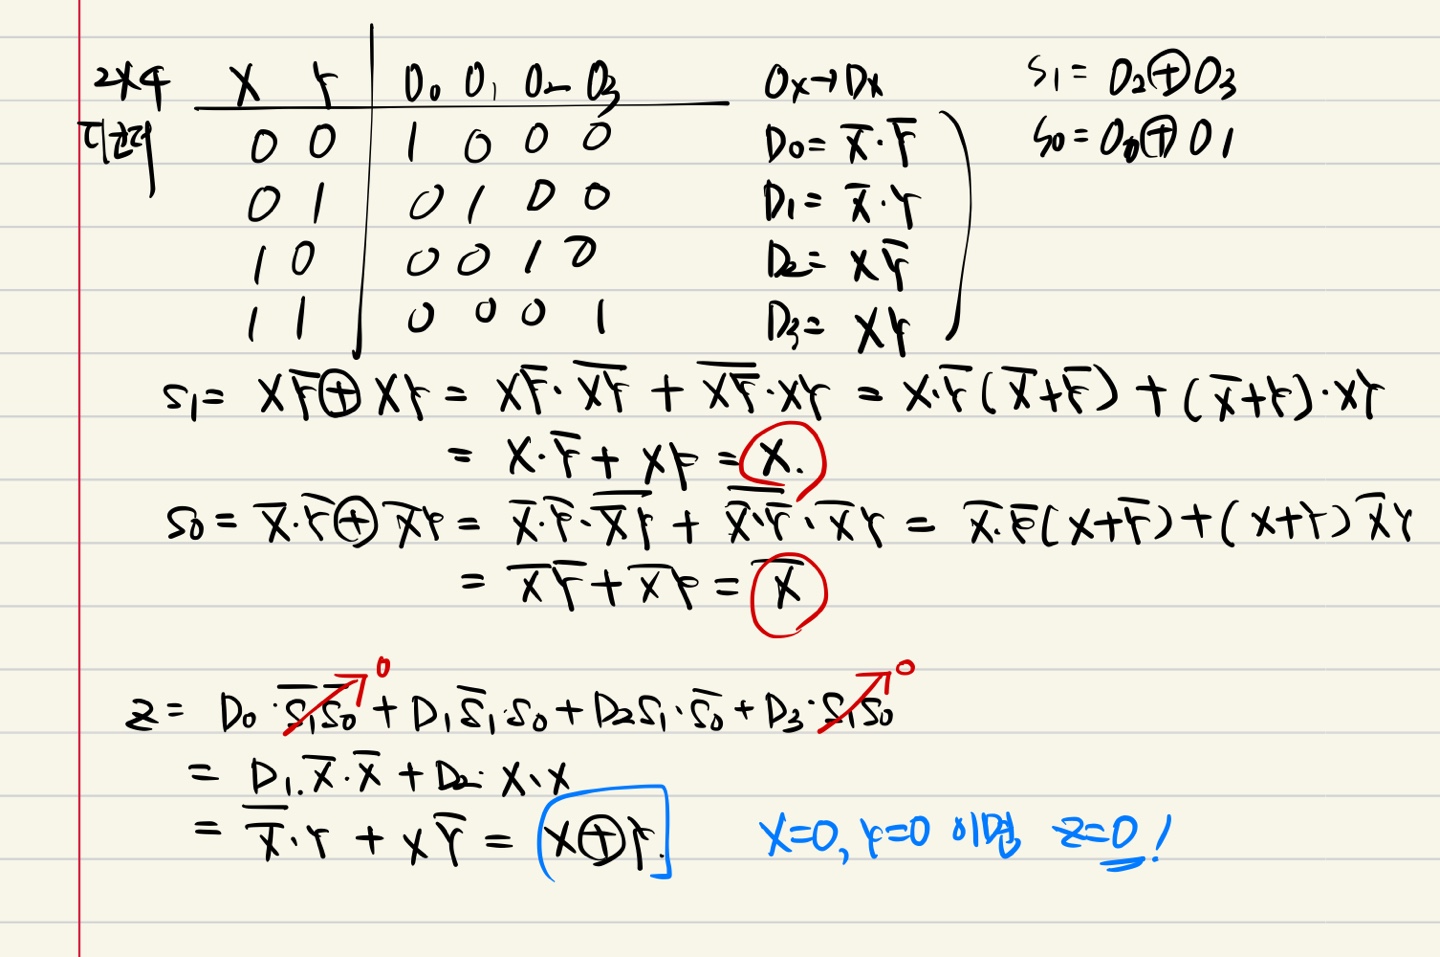 2x4 디코더
X Y | O₀ O₁ O₂ O₃
0 0 | 1 0 0 0
0 1 | 0 1 0 0
1 0 | 0 0 1 0
1 1 | 0 0 0 1
Ox→Dx
D₀ = X̅·Y̅
D₁ = X̅·Y
D₂ = XY̅
D₃ = XY
S₁ = O₂⊕O₃
S₀ = O₀⊕O1
S₁ = XY̅⊕XY = XY̅·\overline{XY} + \overline{XY̅}·XY = X·Y̅(X̅+Y̅) + (X̅+Y)·XY
= X·Y̅ + XY = X.
S₀ = X̅·Y̅⊕X̅Y = X̅·Y̅·\overline{X̅Y} + \overline{X̅·Y̅}·X̅Y = X̅·Y̅(X+Y̅) + (X+Y)X̅Y
= X̅Y̅ + X̅Y = X̅
Z = D₀·S̅₁S̅₀ + D₁S̅₁·S₀ + D₂S₁·S̅₀ + D₃·S₁S₀
0 0
= D₁.X̅·X̅ + D₂·X·X
= X̅·Y + XY̅ = X⊕Y.
X=0, Y=0 이면 Z=0!